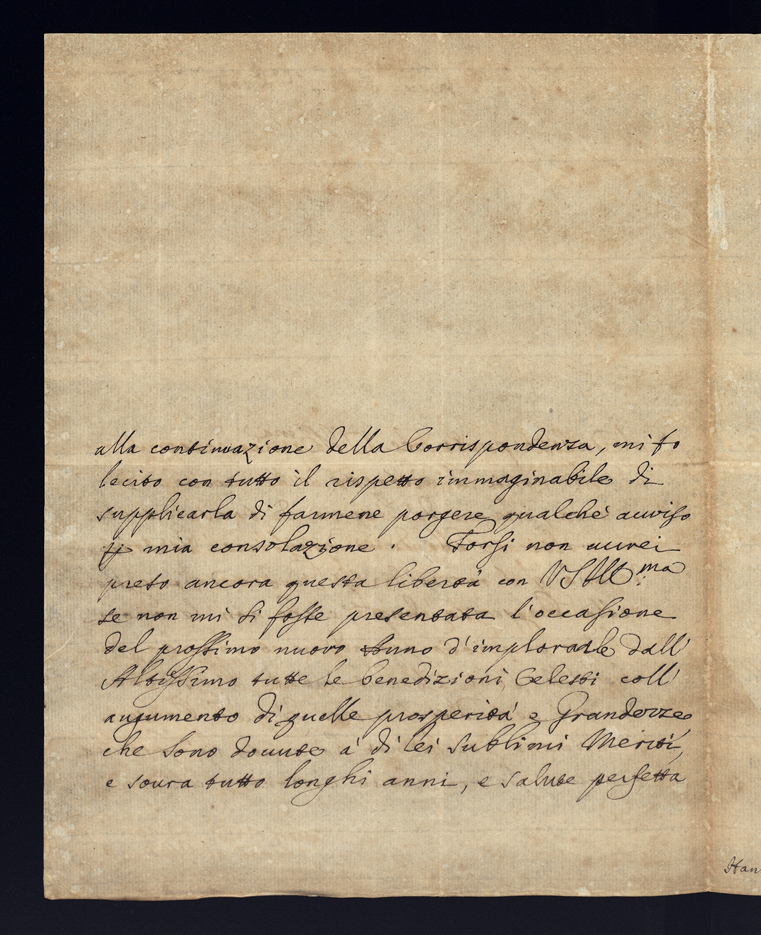 alla continuazione della Corrispondenza, mi fo
lecito con tutto il rispetto immaginabile di
supplicarla di farmene porgere qualche auviso
mia consolazione. Forsi non aurei
preso ancora questa libertà con VSIll.ma
se non mi si fosse presentata l'occasione
del prossimo nuovo Anno d'implorarle dall'
Altissimo tutte le benedizioni Celesti coll'
augumento di quelle prosperità e Grandezze
che sono douute à di lei sublimi Meriti,
e soura tutto longhi anni, e salute perfetta
Han